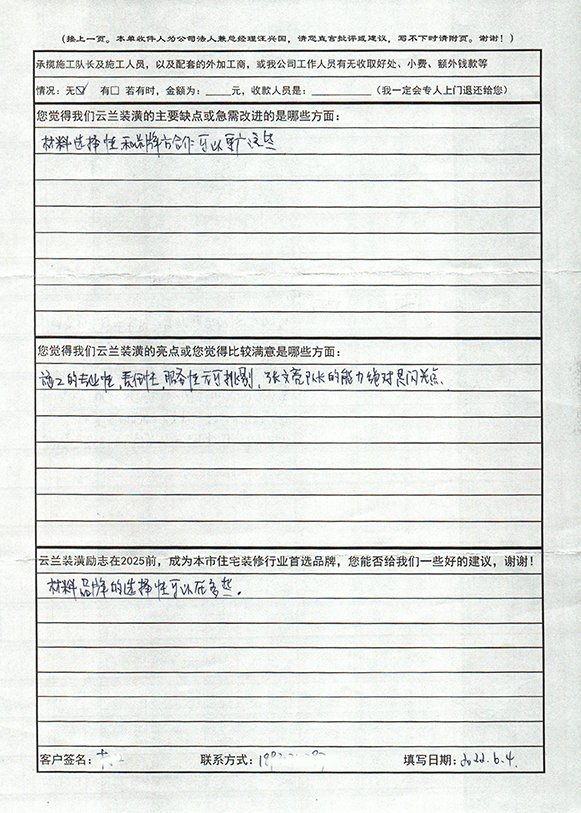 (接上一页。本单收件人为公司法人兼总经理汪兴国，请您直言批评或建议，写不下时请附页。谢谢！)
承揽施工队长及施工人员，以及配套的外加工商，或我公司工作人员有无收取好处、小费、额外钱款等
情况：无☑ 有□ 若有时，金额为：______元，收款人员是：__________（我一定会专人上门退还给您）
您觉得我们云兰装潢的主要缺点或急需改进的是哪些方面：
材料选择性和品牌方合作可以更广泛些
您觉得我们云兰装潢的亮点或您觉得比较满意是哪些方面：
施工的专业性，责任性，服务性无可挑剔，张文亮队长的能力绝对是闪光点。
云兰装潢励志在2025前，成为本市住宅装修行业首选品牌，您能否给我们一些好的建议，谢谢！
材料品牌的选择性可以在多些。
客户签名： 联系方式： 填写日期：2022.6.4.